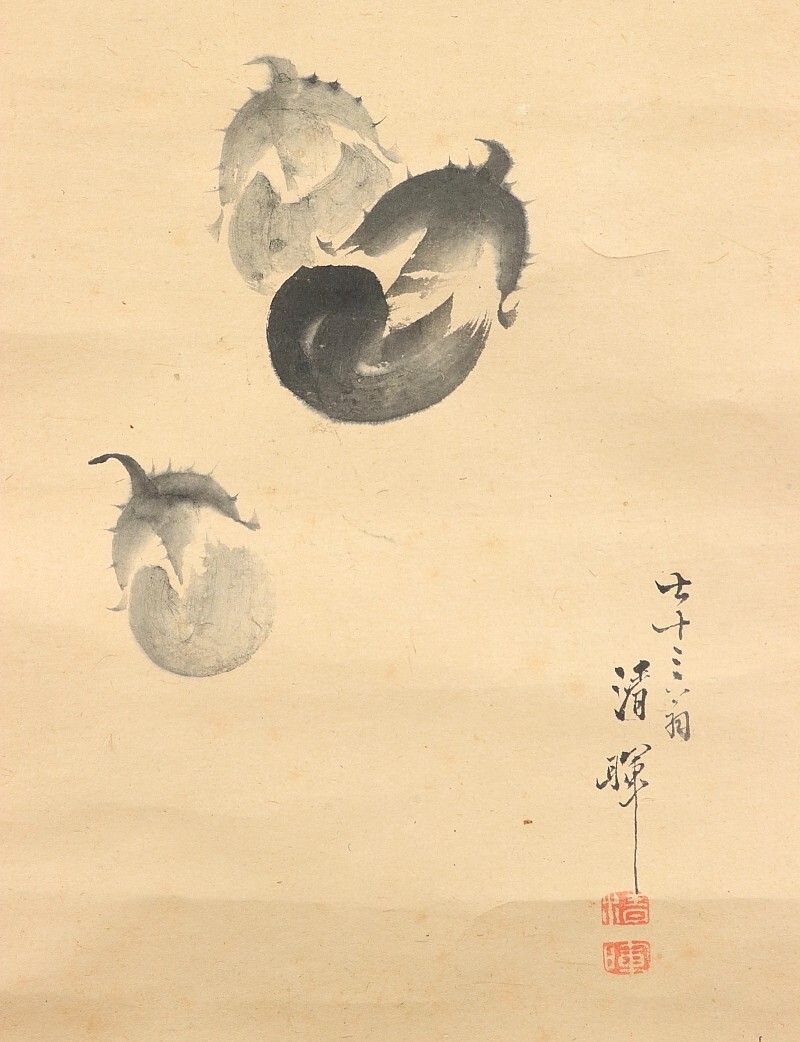 七十三翁
清暉
清
暉